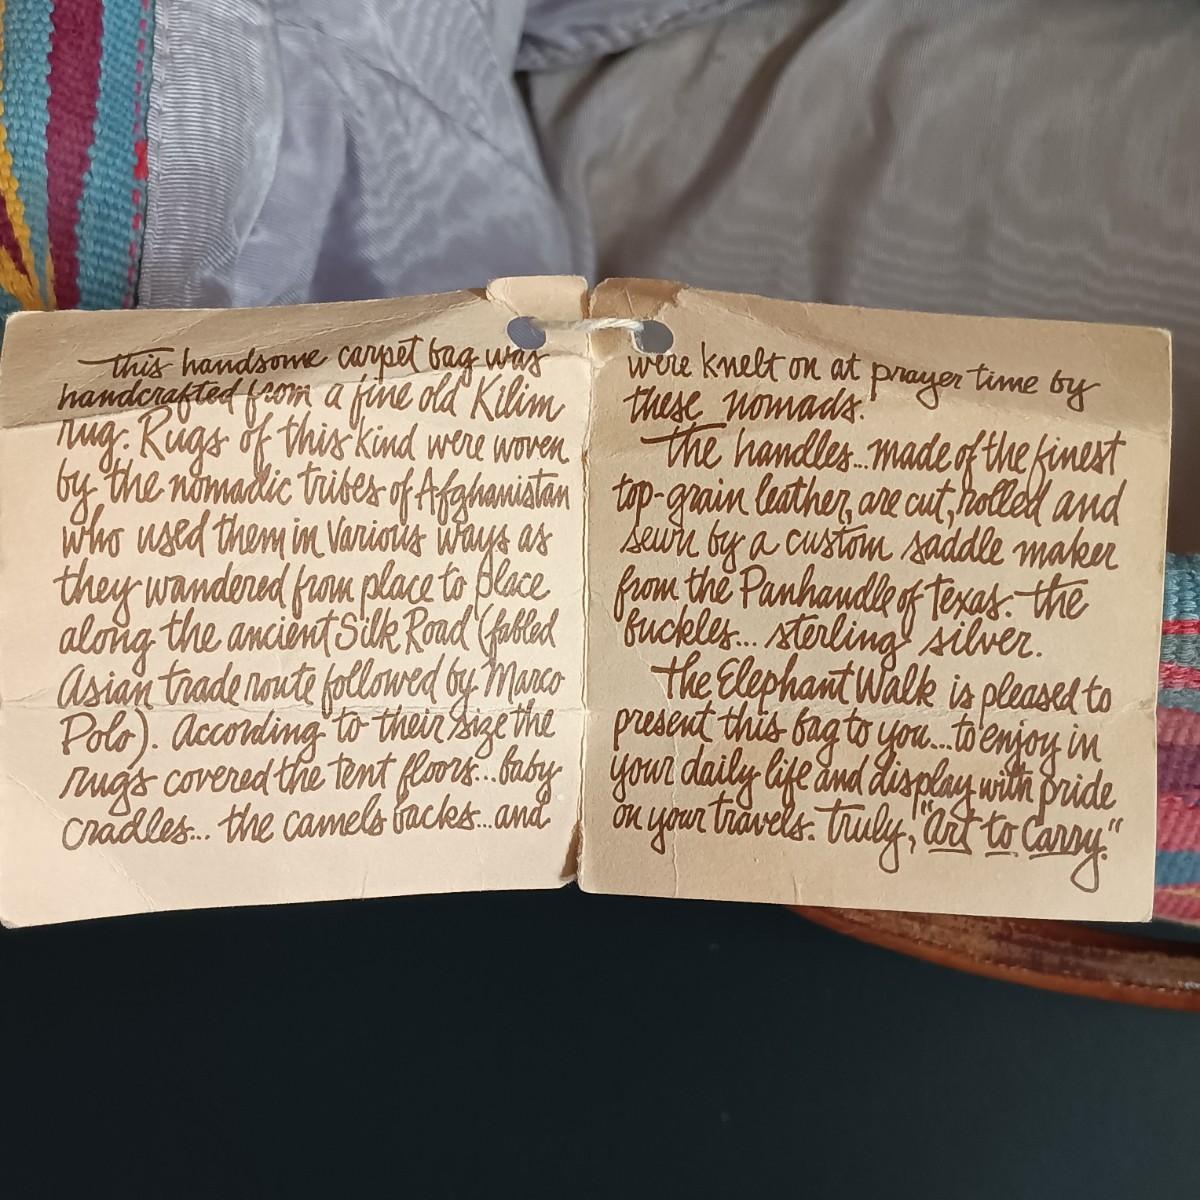 This handsome carpet bag was
handcrafted from a fine old Kilim
rug. Rugs of this kind were woven
by the nomadic tribes of Afghanistan
who used them in various ways as
they wandered from place to place
along the ancient Silk Road (fabled
Asian trade route followed by Marco
Polo). According to their size the
rugs covered the tent floors...baby
cradles... the camels backs...and
were knelt on at prayer time by
these nomads.
The handles...made of the finest
top-grain leather, are cut, rolled and
sewn by a custom saddle maker
from the Panhandle of Texas. The
buckles... sterling silver.
The Elephant Walk is pleased to
present this bag to you...to enjoy in
your daily life and display with pride
on your travels. Truly, "Art to Carry."